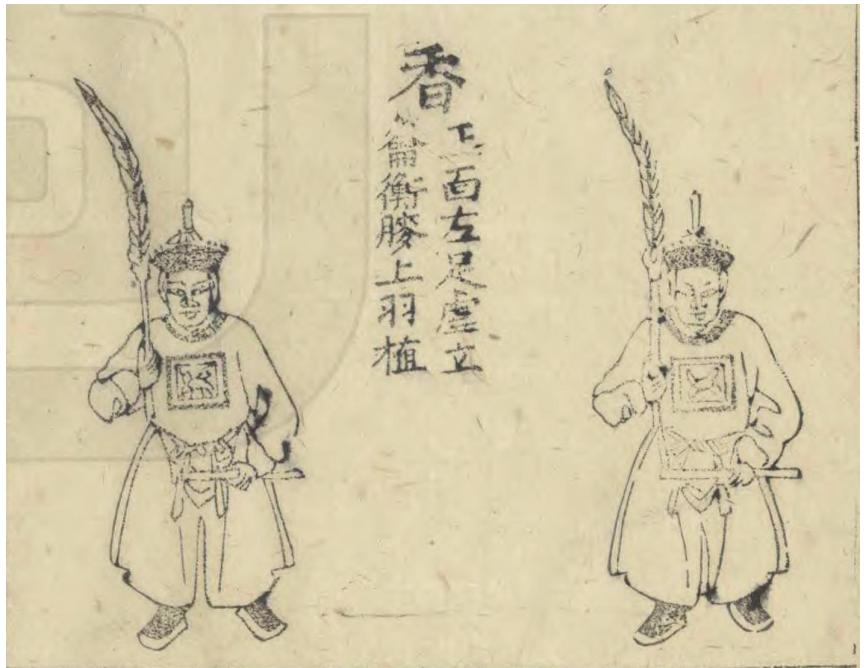 香
正面左足虛立
籥衡膝上羽植